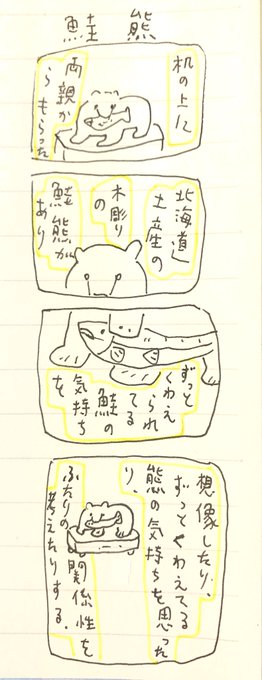 鮭熊
机の上に
両親か
らもらった
北海道
土産の
木彫り
の
鮭熊が
あり
ずっと
くわえ
られ
てる
鮭の
気持ち
を
想像したり、
ずっとくわえてる
熊の気持ちを思った
り、
ふたりの関係性を
考えたりする。